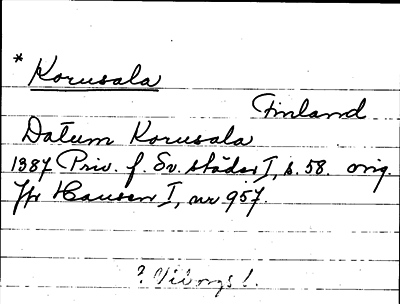 * Korusala
Finland
Datum Korusala
1387 Priv. f. Sv. städer I, s. 58. orig.
Jfr Hausen I, nr 957.
? Viborgs l.